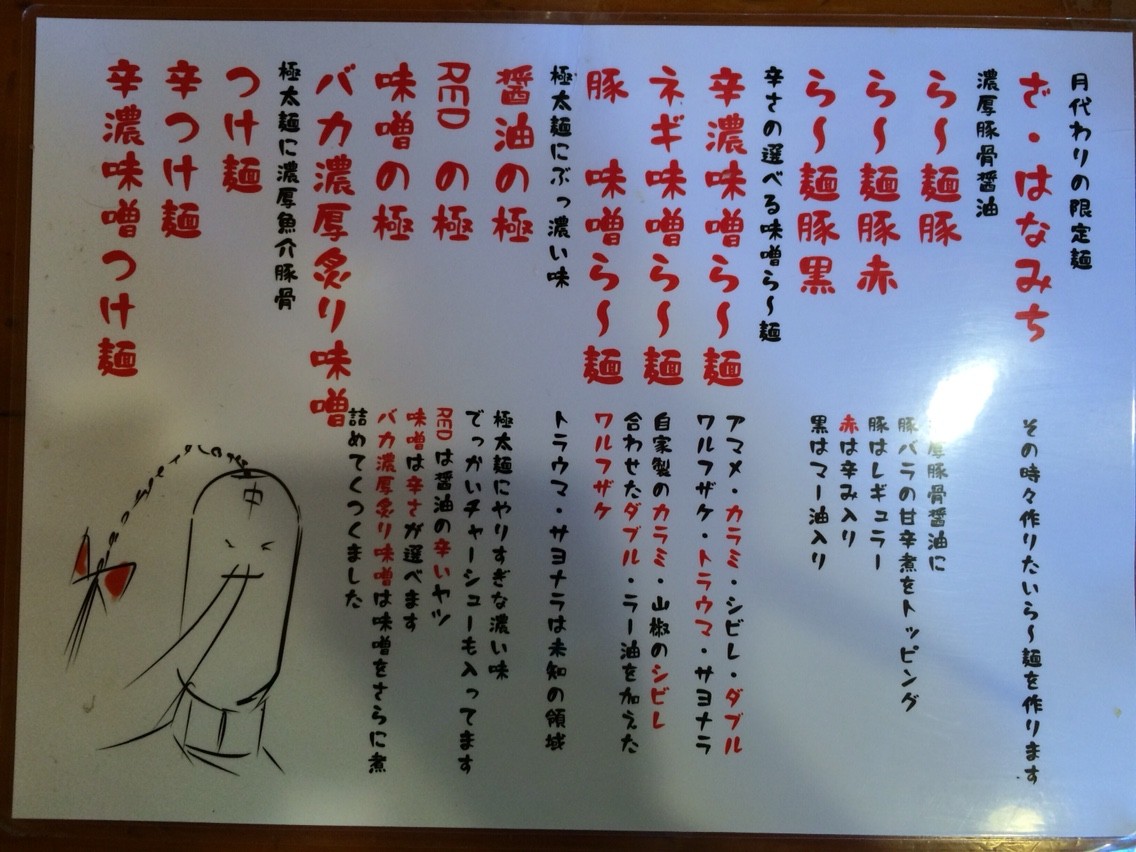 月代わりの限定麺
ざ・はなみち
その時々作りたいら〜麺を作ります
濃厚豚骨醤油
ら〜麺豚
ら〜麺豚赤
ら〜麺豚黒
厚豚骨醤油に
豚バラの甘辛煮をトッピング
豚はレギュラー
赤は辛み入り
黒はマー油入り
辛さの選べる味噌ら〜麺
辛濃味噌ら〜麺
ネギ味噌ら〜麺
豚 味噌ら〜麺
アマメ・カラミ・シビレ・ダブル
ワルフザケ・トラウマ・サヨナラ
自家製のカラミ・山椒のシビレ
合わせたダブル・ラー油を加えた
ワルフザケ
トラウマ・サヨナラは未知の領域
極太麺にぶっ濃い味
醤油の極
REDの極
味噌の極
バカ濃厚炙り味噌
極太麺にやりすぎな濃い味
でっかいチャーシューも入ってます
REDは醤油の辛いヤツ
味噌は辛さが選べます
バカ濃厚炙り味噌は味噌をさらに煮
詰めてくつくました
極太麺に濃厚魚介豚骨
つけ麺
辛つけ麺
辛濃味噌つけ麺
中